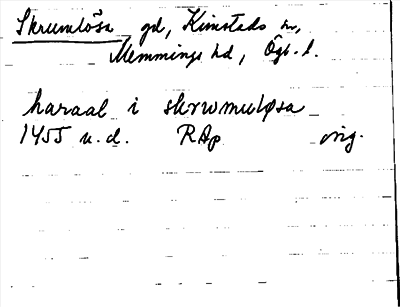 Skrumlösa gd, Kimstads sn,
Memmings hd, Ögl. l.
haraal i skrwmuløsa
1455 u.d. RAp orig.